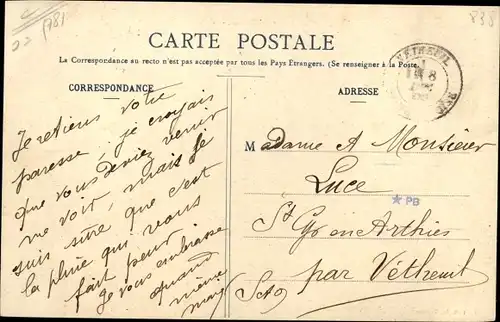 22 1981
838
CARTE POSTALE
La Correspondance au recto n'est pas acceptée par tous les Pays Etrangers. (Se renseigner à la Poste.)
CORRESPONDANCE
Je retiens votre
paresse, je croyais
que vous deviez venir
me voir, mais je
suis sûre que c'est
la pluie qui vous
fait peur
Je vous embrasse
quand
même
ADRESSE
Madame & Monsieur
Luce
PB
St Cyr en Arthies
par Vétheuil
S & O
VETHEUIL